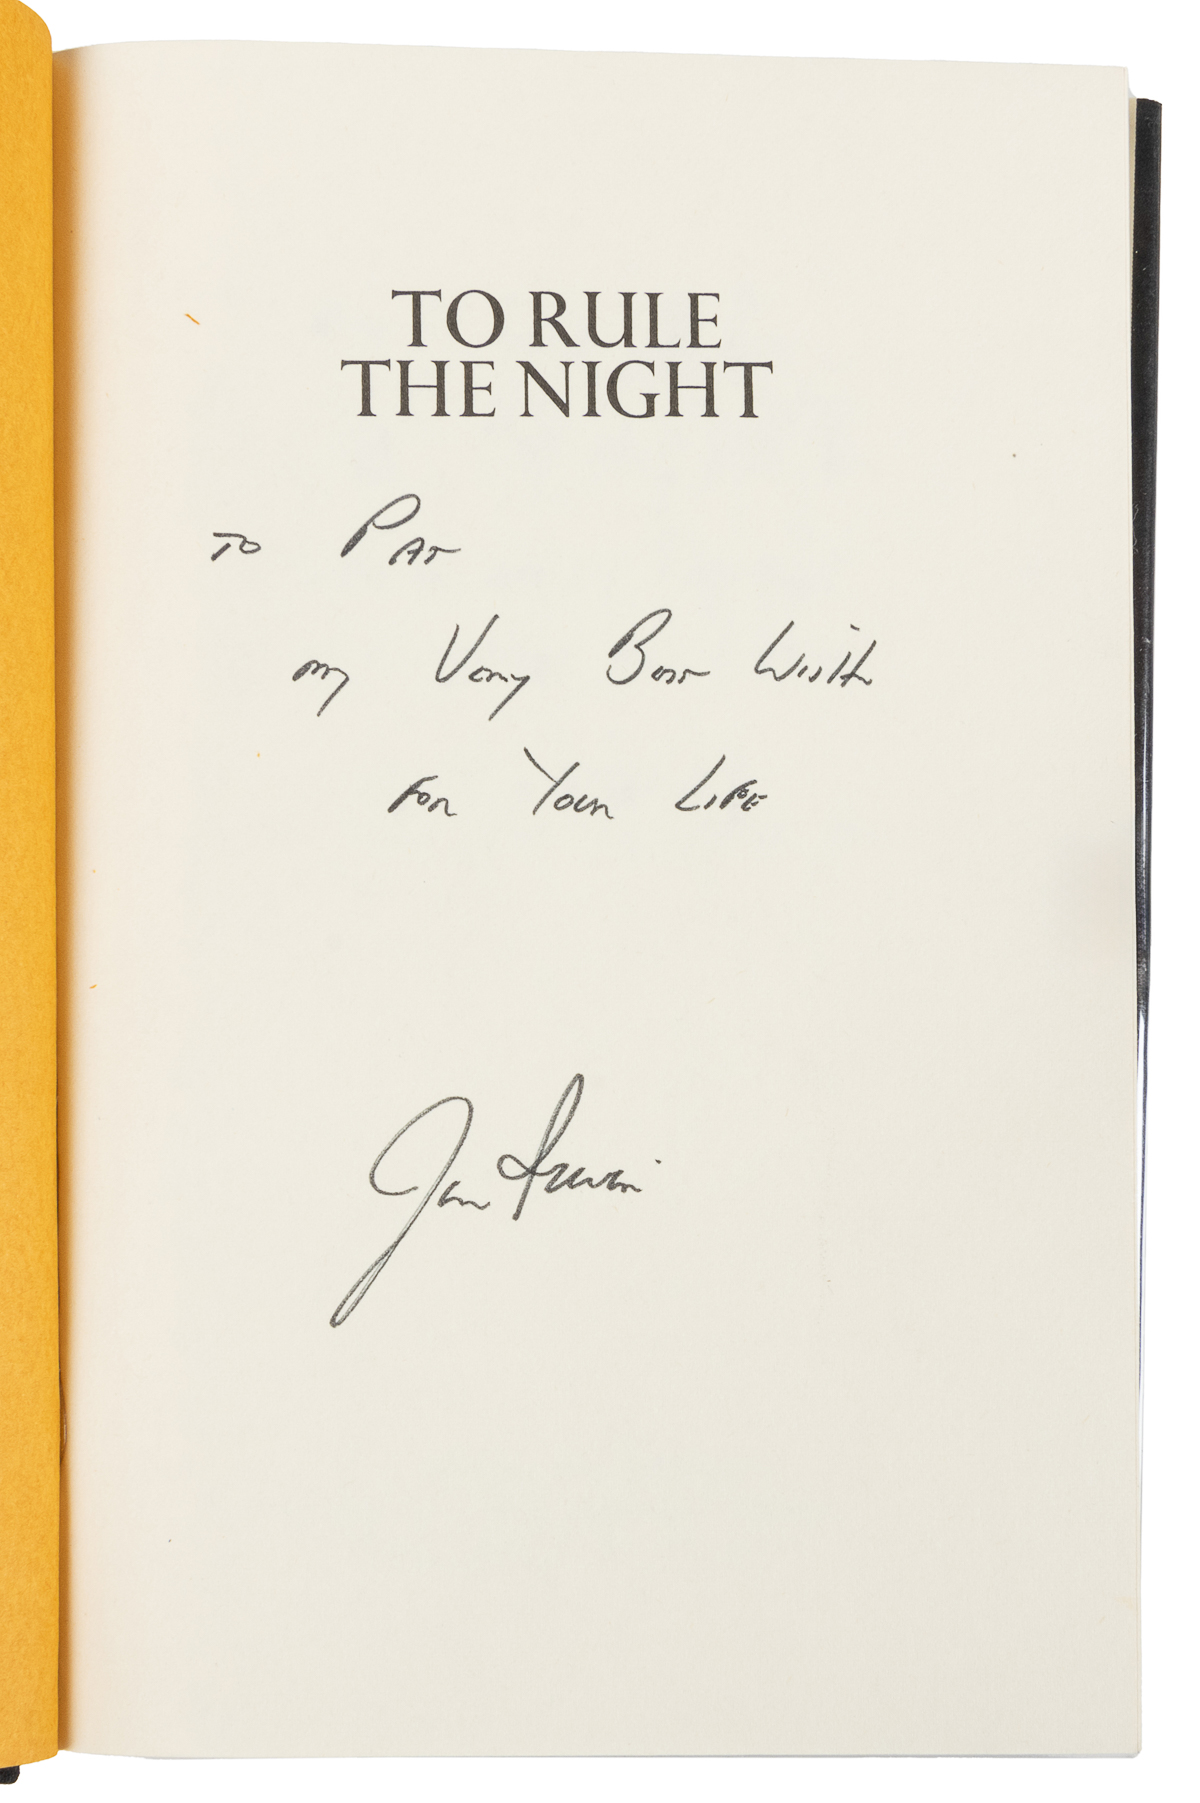 TO RULE
THE NIGHT
To Pat
my Very Best Wish
for Your Life
Jim Irwin